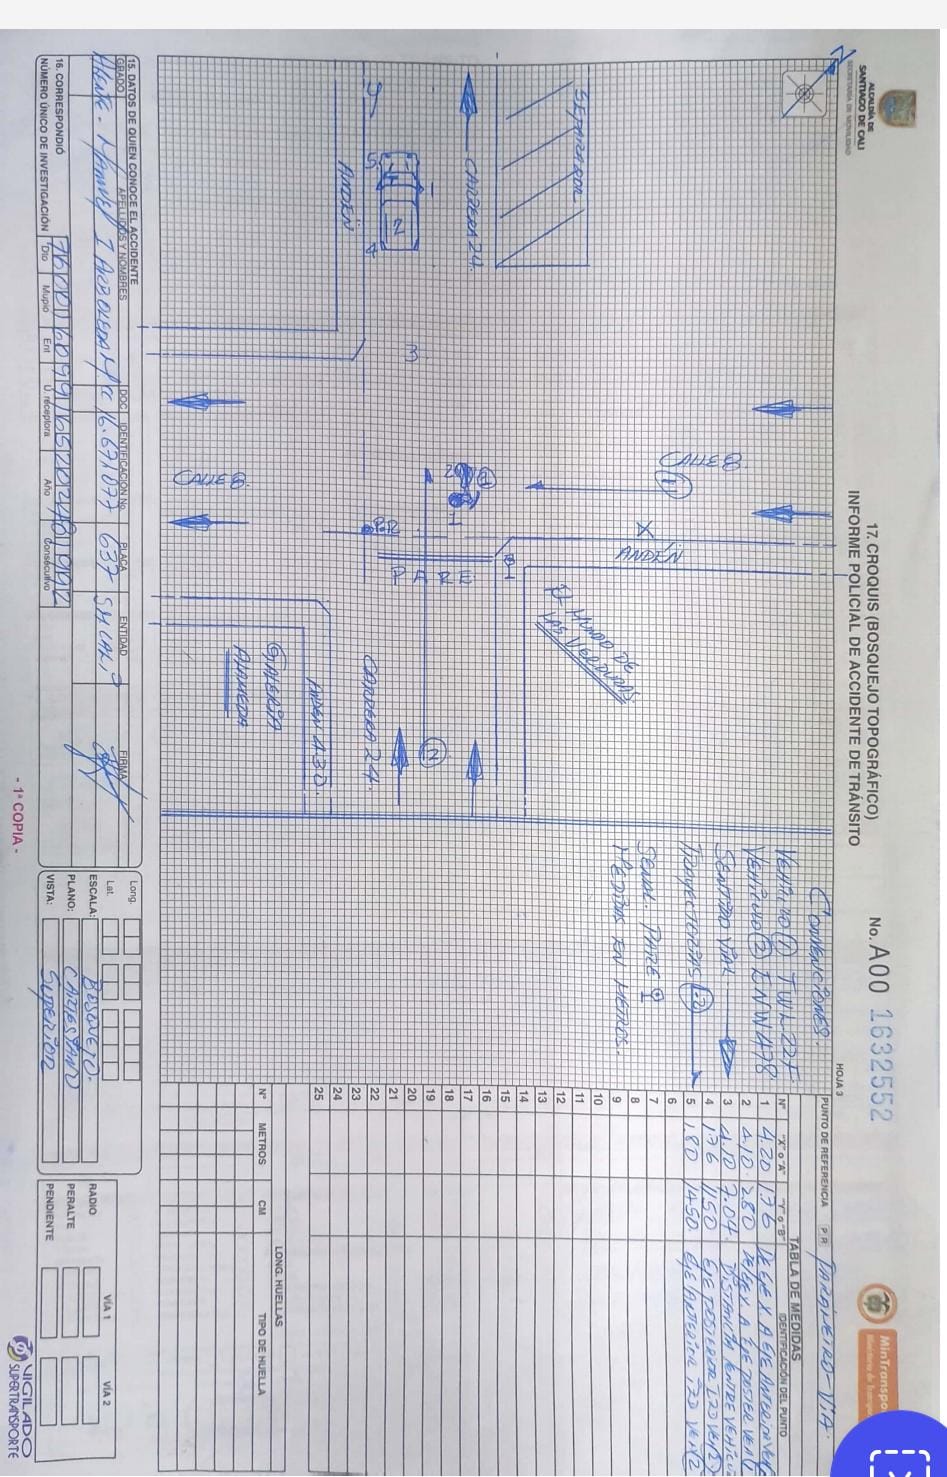 ALCALDÍA DE
SANTIAGO DE CALI
SECRETARÍA DE MOVILIDAD
17. CROQUIS (BOSQUEJO TOPOGRÁFICO)
INFORME POLICIAL DE ACCIDENTE DE TRÁNSITO
No. A00 1632552
HOJA 3
MinTranspo
SEPARADOR
CARRERA 24.
Y
ANDÉN
5
1
2
4
3
CALLE 8
1
CALLE 8.
X
ANDÉN
2
1
1
P.R.
PARE
EL MUNDO DE
LAS VERDURAS
GALERÍA
ALAMEDA
ANDEN 4.30.
CARRERA 24.
2
CONVENCIONES:
VEHÍCULO 1 TWL22F
VEHÍCULO 2 ENW478
SENTIDO VIAL
TRAYECTORIAS 1-2
SEÑAL PARE
MEDIDAS EN METROS.
PUNTO DE REFERENCIA P.R. PARÁMETRO-VÍA.
TABLA DE MEDIDAS
Nº "X" o "A" "Y" o "B" IDENTIFICACIÓN DEL PUNTO
1 4.20 1.76 DE EJE X A EJE ANTERIOR
2 4.10. 2.80 DE EJE X A EJE POSTER VEH 1
3 4.10 7.04. DISTANCIA ENTRE VEHICU
4 1.76 11.50 EJE POSTERIOR IZD VEH 2
5 1.80 14.50. EJE ANTERIOR IZD VEH 2
6
7
8
9
10
11
12
13
14
15
16
17
18
19
20
21
22
23
24
25
LONG. HUELLAS
Nº METROS CM TIPO DE HUELLA
15. DATOS DE QUIEN CONOCE EL ACCIDENTE
GRADO APELLIDOS Y NOMBRES DOC IDENTIFICACIÓN No. PLACA ENTIDAD FIRMA
AGENTE - MANUEL I ARBOLEDA M CC 16.671.077 637 SM CALI
16. CORRESPONDIÓ
NÚMERO ÚNICO DE INVESTIGACIÓN 760016099165202401992
Dpto Mupio Ent U. receptora Año Consecutivo
Long.
Lat.
ESCALA: BOSQUEJO.
PLANO: CARTESIANO
VISTA: SUPERIOR
VÍA 1 VÍA 2
RADIO
PERALTE
PENDIENTE
- 1ª COPIA -
VIGILADO
SUPERTRANSPORTE